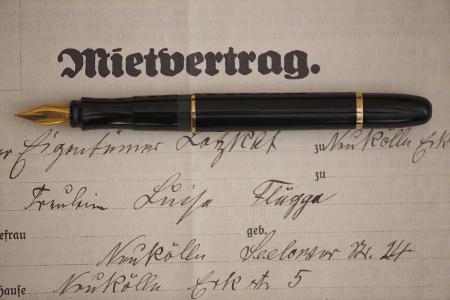 Mietvertrag.
er Eigentümer Lotzkat zu Neukölln Erk
zu
Fräulein Luise Flügga
efrau geb.
Neukölln Seelower Str. 24
hause Neukölln Erk str 5